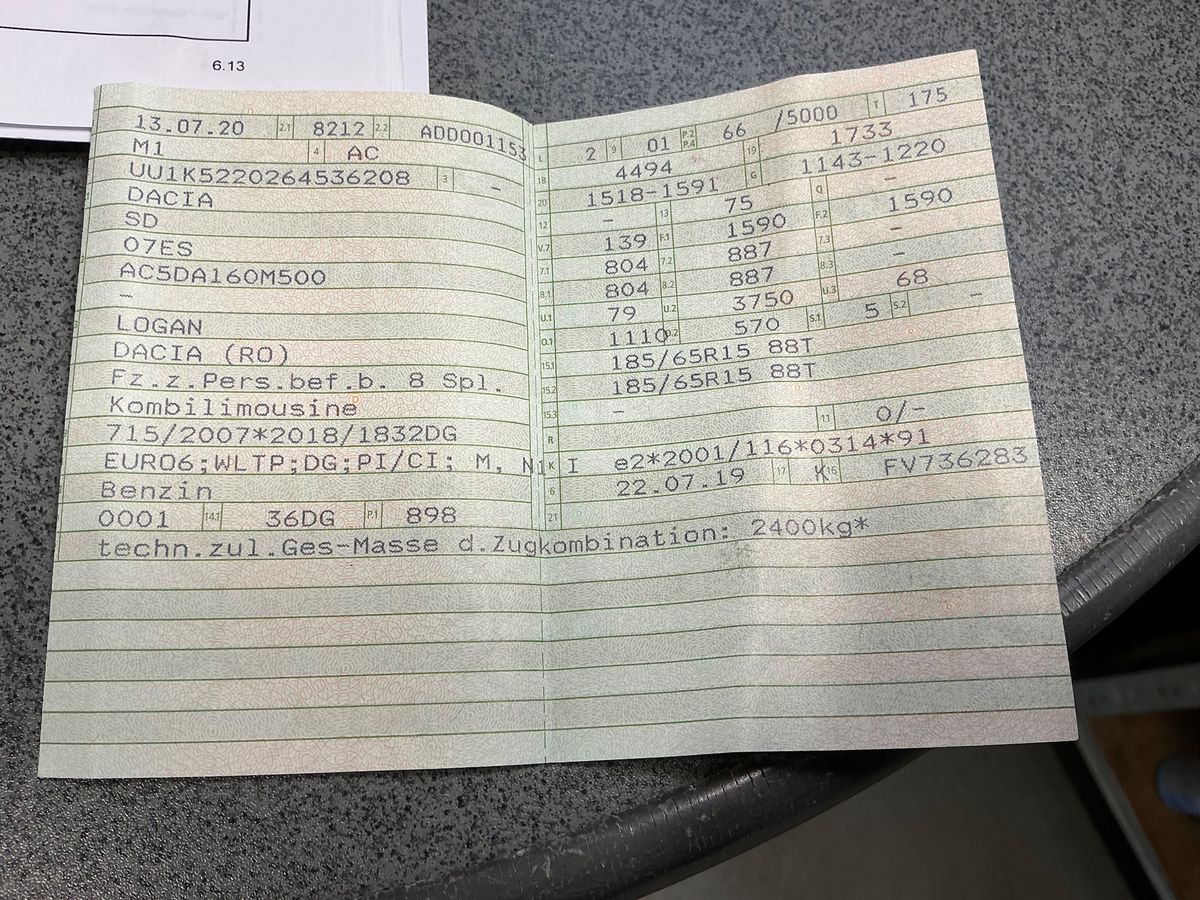 6.13
13.07.20 2.1 8212 2.2 ADD001153
M1 4 AC
UU1K5220264536208 3 –
DACIA
SD
07ES
AC5DA160M500
–
LOGAN
DACIA (RO)
Fz.z.Pers.bef.b. 8 Spl.
Kombilimousine
715/2007*2018/1832DG
EURO6;WLTP;DG;PI/CI; M, N1 I
Benzin
0001 14.1 36DG P.1 898
techn.zul.Ges-Masse d.Zugkombination: 2400kg*
L 2 9 01 P.2 P.4 66 /5000 T 175
18 4494 19 1733
20 1518-1591 G 1143-1220
12 – 13 75 Q –
V.7 139 F.1 1590 F.2 1590
7.1 804 7.2 887 7.3 –
8.1 804 8.2 887 8.3 –
U.1 79 U.2 3750 U.3 68
O.1 1110 O.2 570 S.1 5 S.2 –
15.1 185/65R15 88T
15.2 185/65R15 88T
15.3 –
R 11 0/–
K e2*2001/116*0314*91
6 22.07.19 17 K 16 FV736283
21